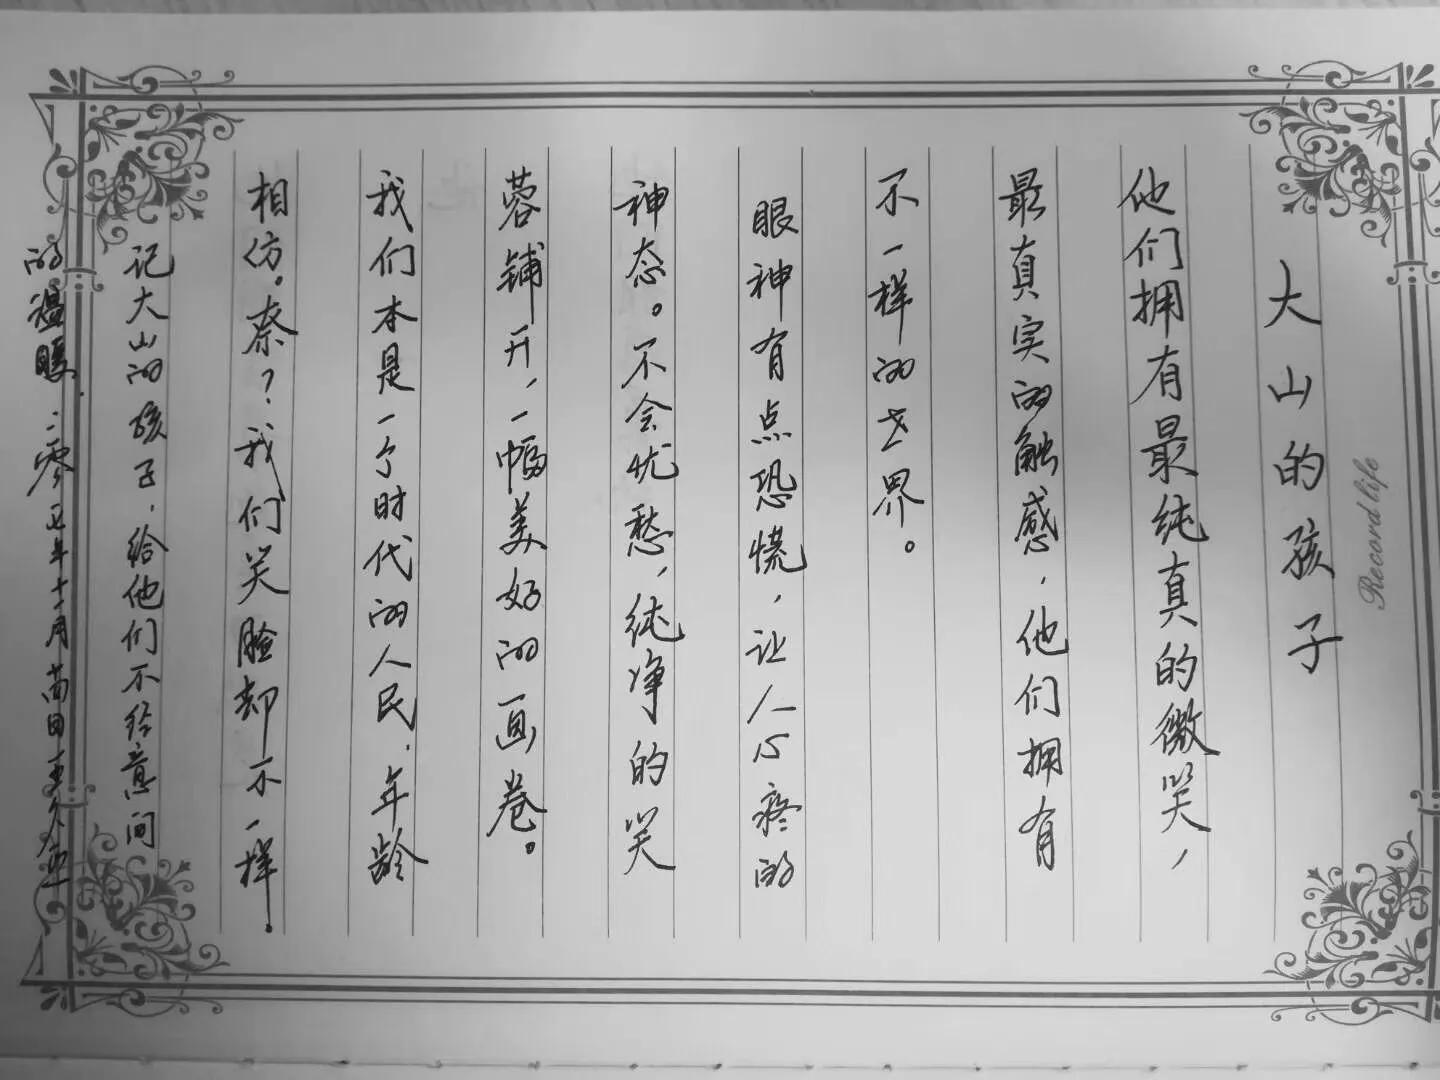 大山的孩子
他们拥有最纯真的微笑，
最真实的触感，他们拥有
不一样的世界。
眼神有点恐慌，让人心疼的
神态。不会忧愁，纯净的笑
蓉铺开，一幅美好的画卷。
我们本是一个时代的人民，年龄
相仿。奈？我们笑脸却不一样．
记大山的孩子．给他们不给意间
的温暖．二零
年十二月
Record life